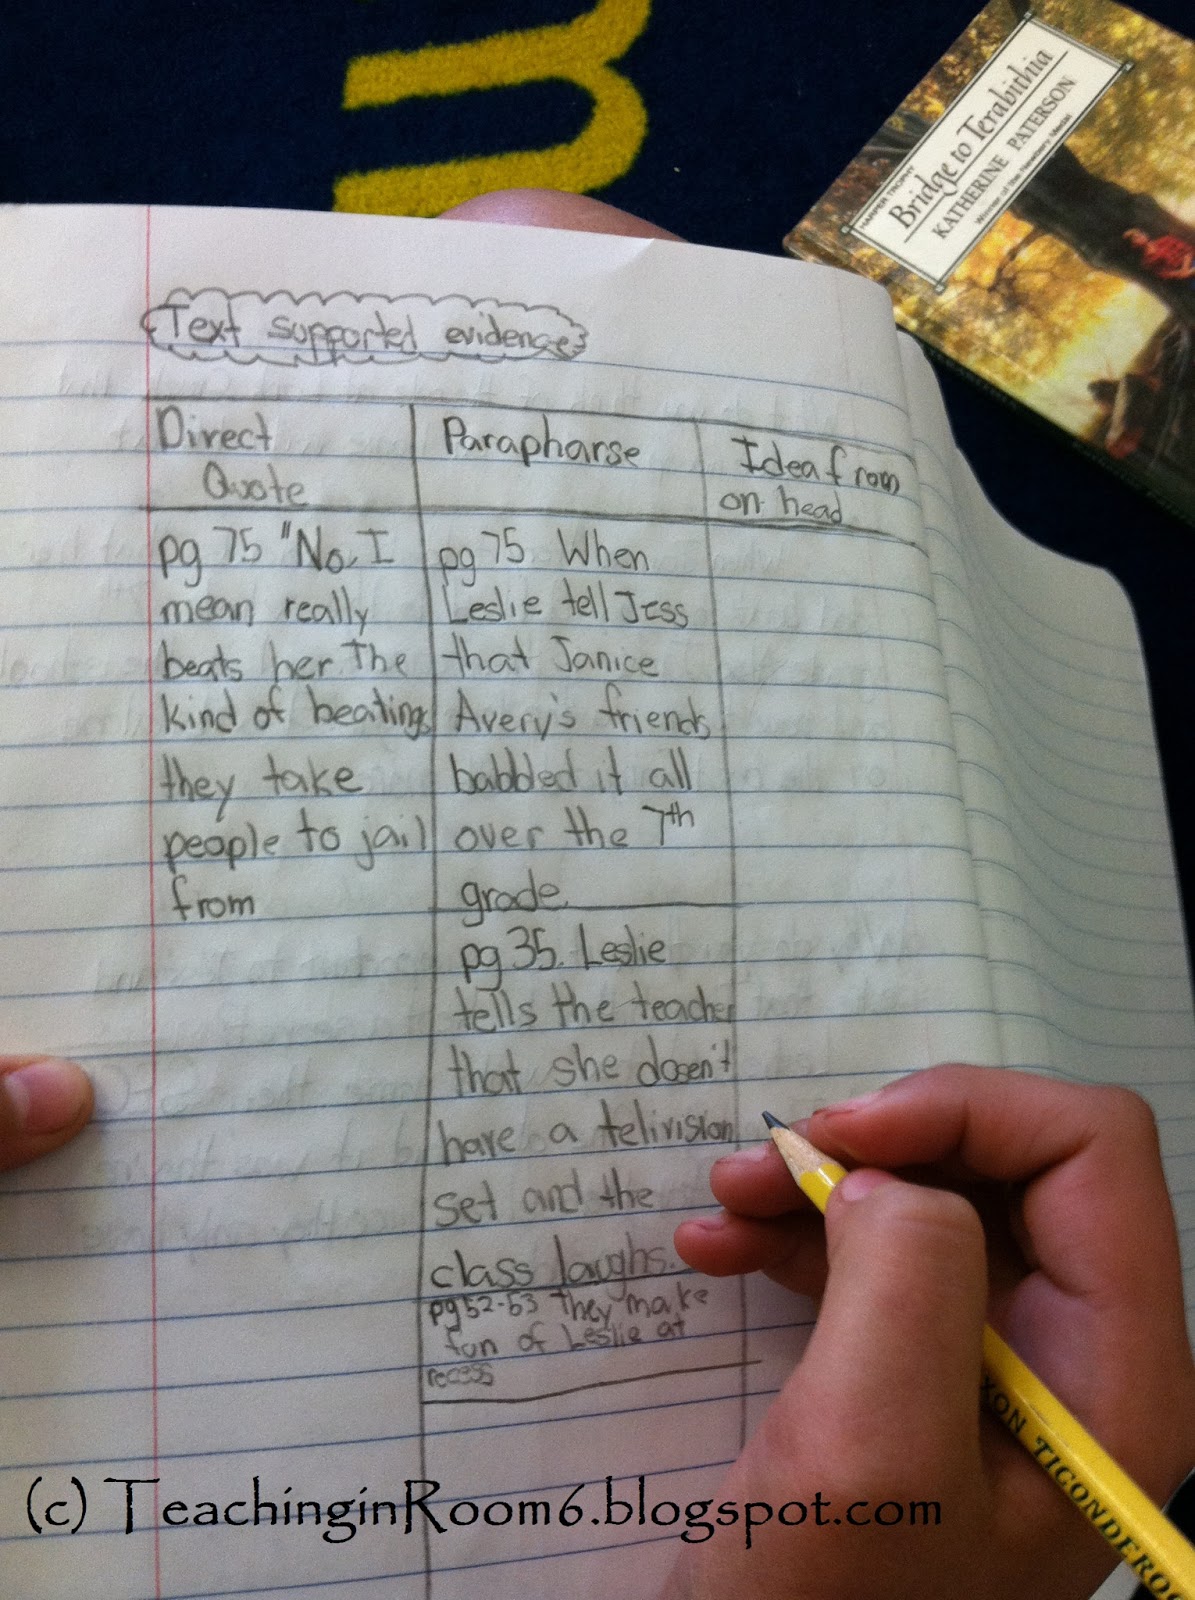 HARPER TROPHY
Bridge to Terabithia
KATHERINE PATERSON
Winner of the Newbery Medal
Text supported evidences
Direct
Quote
pg 75 "No, I
mean really
beats her. The
kind of beatings
they take
people to jail
from
Parapharse
pg 75. When
Leslie tell Jess
that Janice
Avery's friends
babbled it all
over the 7th
grade.
pg 35. Leslie
tells the teacher
that she dosen't
have a telivision
set and the
class laughs.
pg 52-53 they make
fun of Leslie at
recess
Idea from
on head
XON TICONDEROG
(c) TeachinginRoom6.blogspot.com